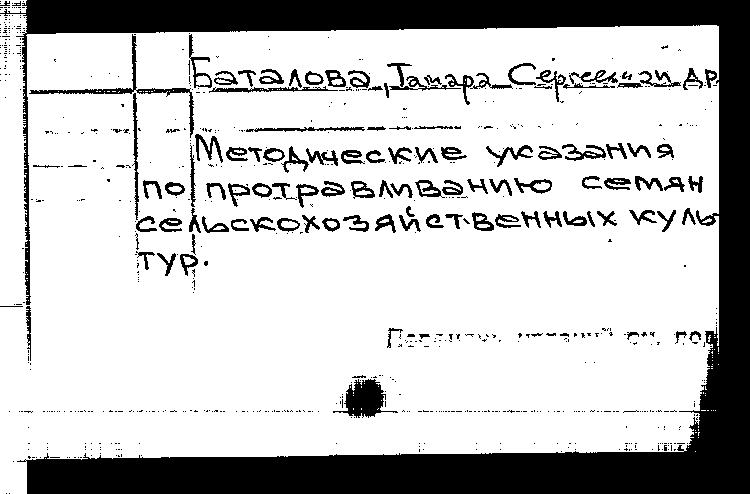 Баталова, Тамара Сергеевна и др
Методические указания
по протравливанию семян
сельскохозяйственных куль
тур.
см. под